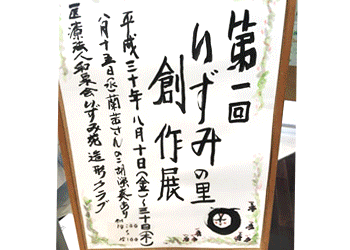 第一回
いずみの里
創作展
平成三十年八月十日(金)~三十日(木)
八月十五日(水)蘭岳さんの三胡演奏あり
医療法人和泉会いずみ苑造形クラブ